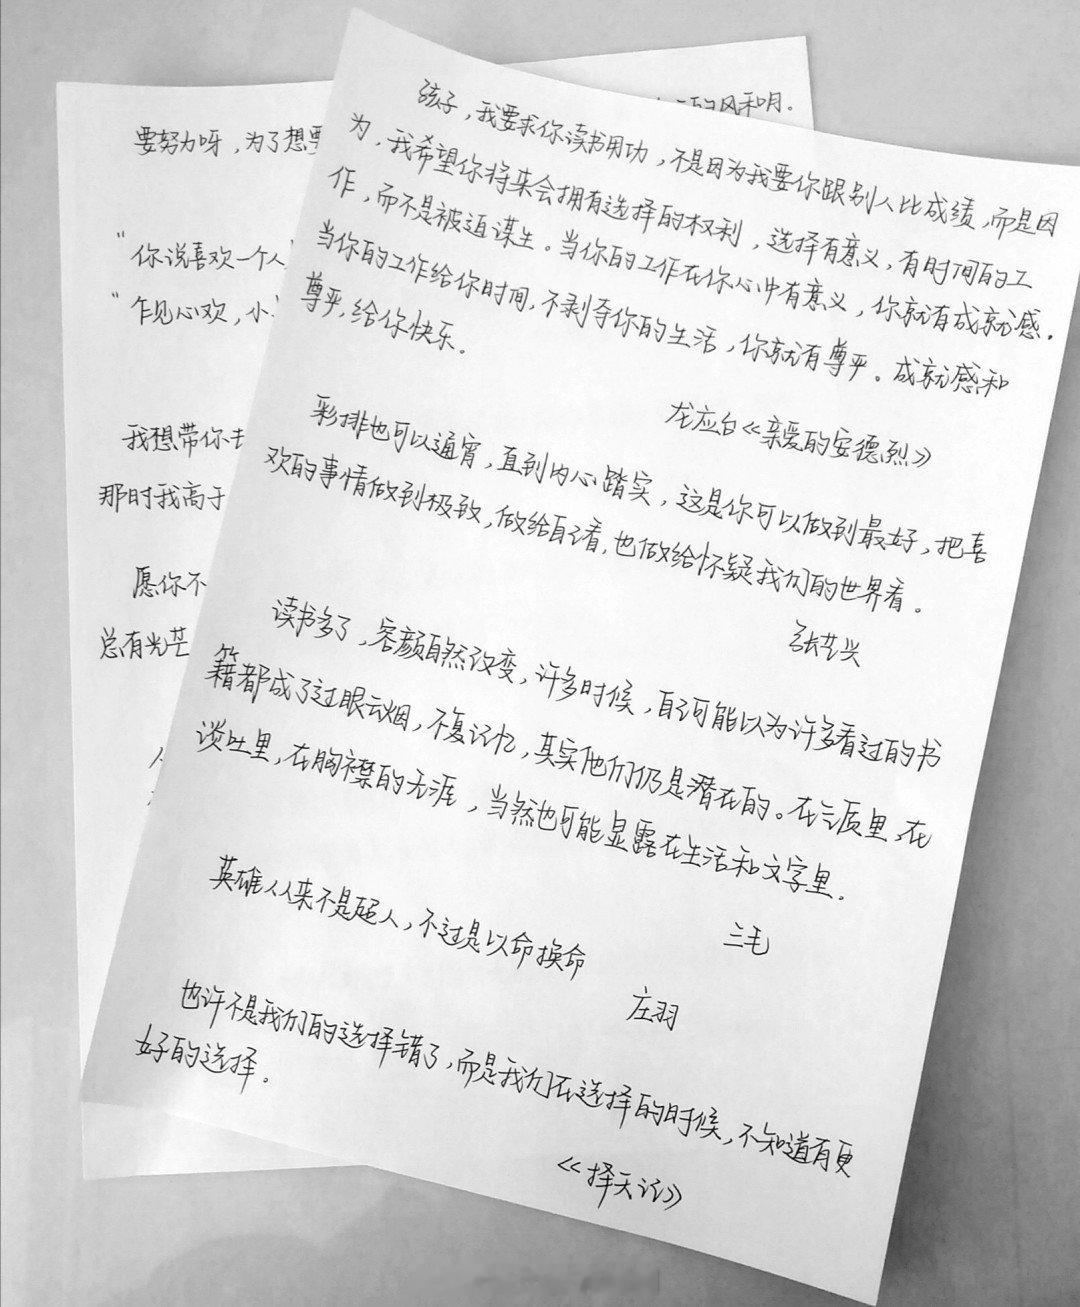 的风和月.
要努力呀，为了想要
"你说喜欢一个人
"乍见心欢，小
我想带你去
那时我高于
愿你不
总有光芒
孩子，我要求你读书用功，不是因为我要你跟别人比成绩，而是因
为，我希望你将来会拥有选择的权利，选择有意义，有时间的工
作，而不是被迫谋生。当你的工作在你心中有意义，你就有成就感.
当你的工作给你时间，不剥夺你的生活，你就有尊严。成就感和
尊严,给你快乐.
龙应台《亲爱的安德烈》
彩排也可以通宵，直到内心踏实，这是你可以做到最好，把喜
欢的事情做到极致，做给自己看，也做给怀疑我们的世界看。
张艺兴
读书多了，容颜自然改变，许多时候，自己可能以为许多看过的书
籍都成了过眼云烟，不复记忆，其实他们仍是潜在的。在气质里，在
谈吐里，在胸襟的无涯，当然也可能显露在生活和文字里.
三毛
英雄从来不是超人，不过是以命换命
庄羽
也许不是我们的选择错了，而是我们在选择的时候，不知道有更
好的选择.
《择天记》